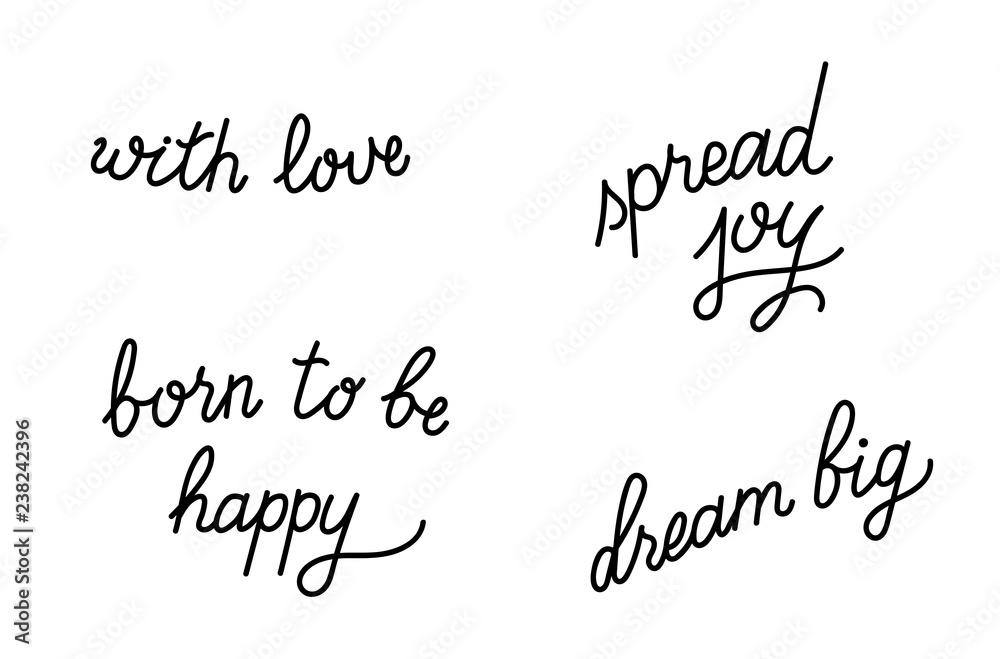 with love
spread
joy
born to be
happy
dream big
Adobe Stock | #238242396